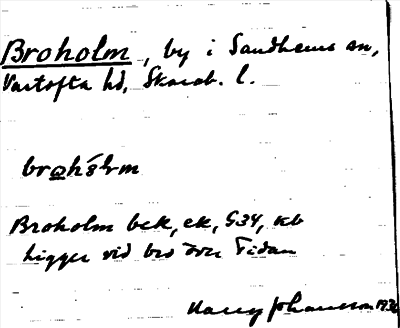 Broholm, by i Sandhems sn,
Vartofta hd, Skarab. l.
Broholm bek, ek, G34, kb
ligger vid bro över Tidan
Harry Johansson